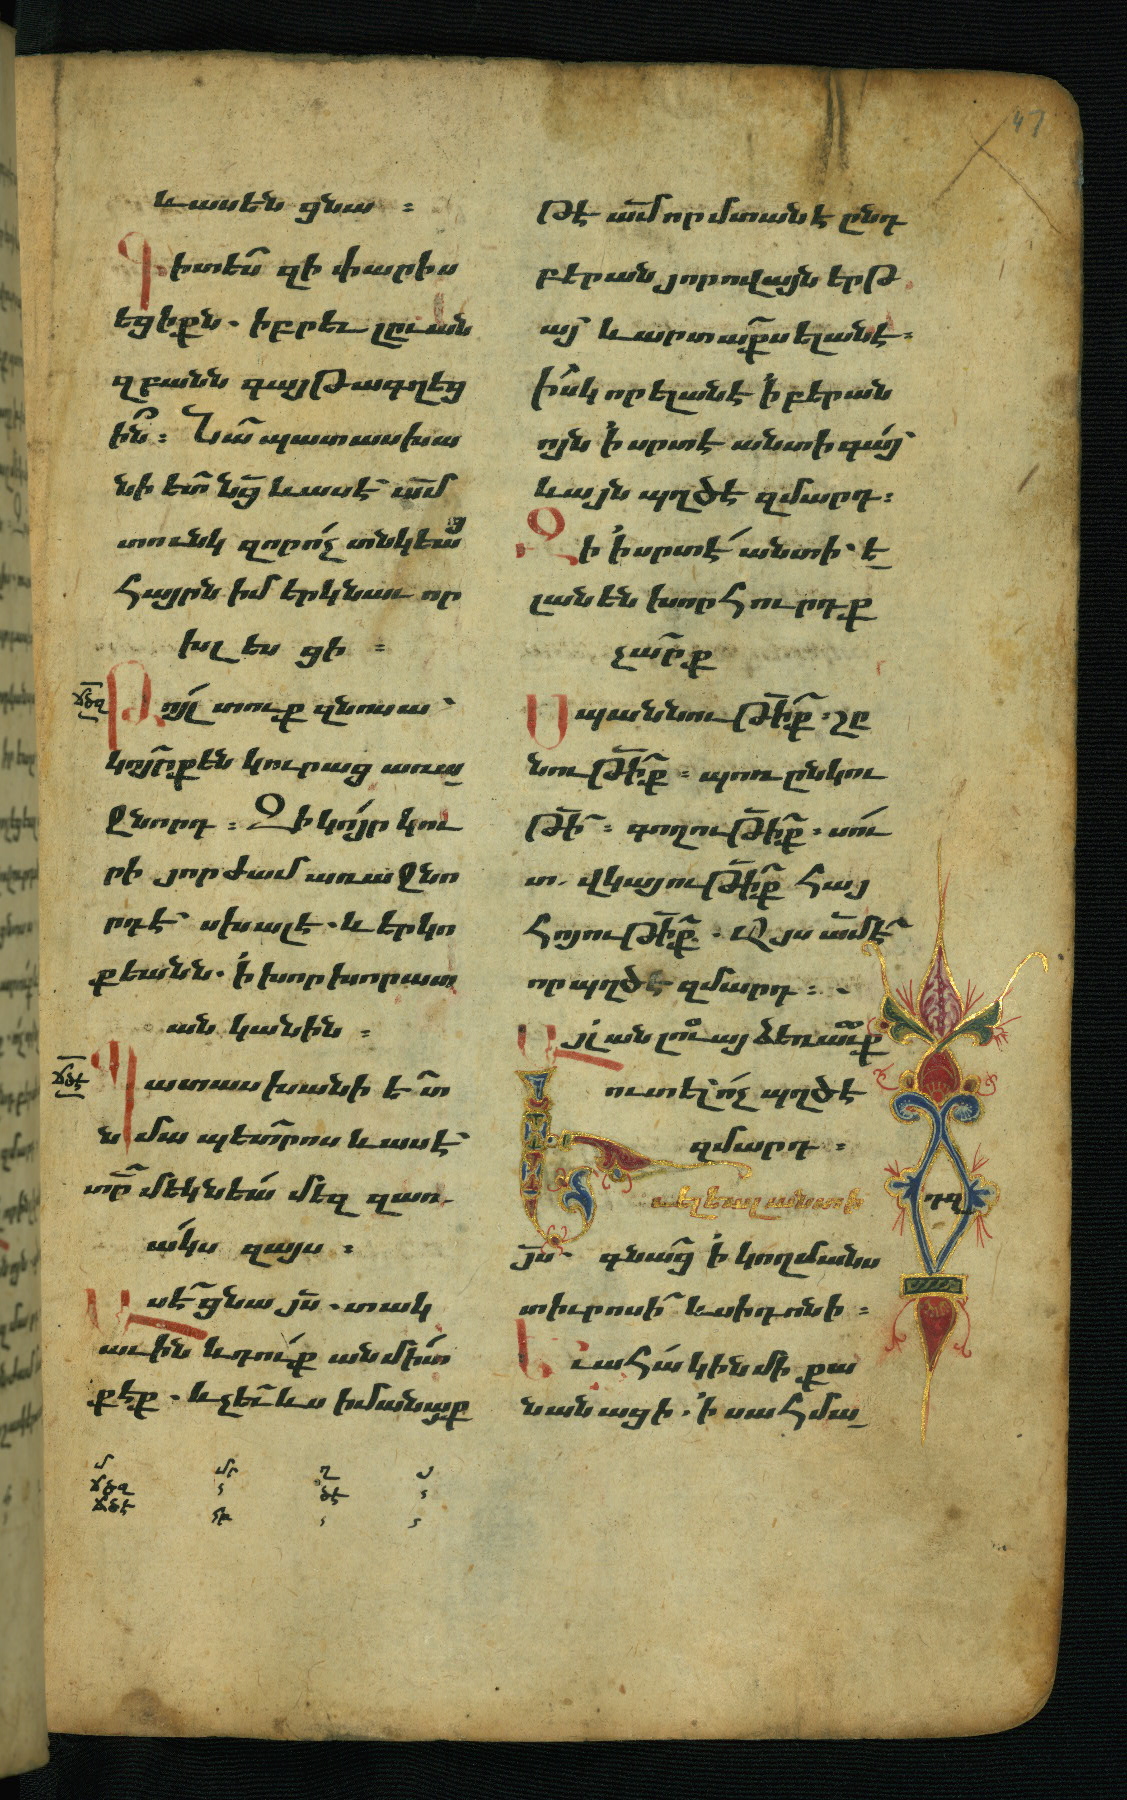 47
և ասեն ցնա ։
Գիտե՞ս զի փարիս
եցիքն . իբրեւ լըւան
զբանն գայթագղեց
ին ։ Նա պատասխա
նի ետ նց և ասէ ամ
տունկ զոր ո՛չ տնկեաց
Հայրն իմ երկնաւոր
խլեսցի ։
ճծզ
Թո՛յլ տուք զնոսա՝
կոյրք են կուրաց առա
ջնորդ ։ Զի կո՛յր կու
րի յորժամ առաջնո
րդէ՝ սխալէ . և երկո
քեանն . ի՛ խորխորատ
անկանին ։
ճծէ
Պատասխանի ետ
նմա պետրոս և ասէ՝
տր մեկնեա՛ մեզ զառ
ակս զայս ։
Ասէ ցնա յս . տակ
աւին և դո՛ւք անմիտ
քէք . և չեւ ևս իմանայք
թէ ամ որ մտանէ ընդ
բերան յորովայն երթ
այ՝ և արտաքս ելանէ ։
Իսկ որ ելանէ ի՛ բերան
ոյն ի՛ սրտէ անտի գայ՝
և այն պղծէ զմարդ ։
Զի ի՛ սրտէ՛ անտի՝ ե
լանեն խորՀուրդք
չարք
Սպանութիք . շը
նութիք ։ պոռընկու
թի ։ գողութիք . սու
տ . վկայութիք Հայ
Հոյութիք . Այս ամէ
որ պղծէ զմարդ ։ .
Այլ անլուայ ձեռաւք
ուտել՝ ո՛չ պղծէ
զմարդ ։
Եւ ելեալ անտի
յս՝ գնաց ի՛ կողմանս
տիւրոսի և սիդոնի ։
Եւ աՀա՛ կին մի քա
նանացի . ի՛ սաՀմա
դզ
մ մր ղ յ
ճծզ
ճծէ
ծէ